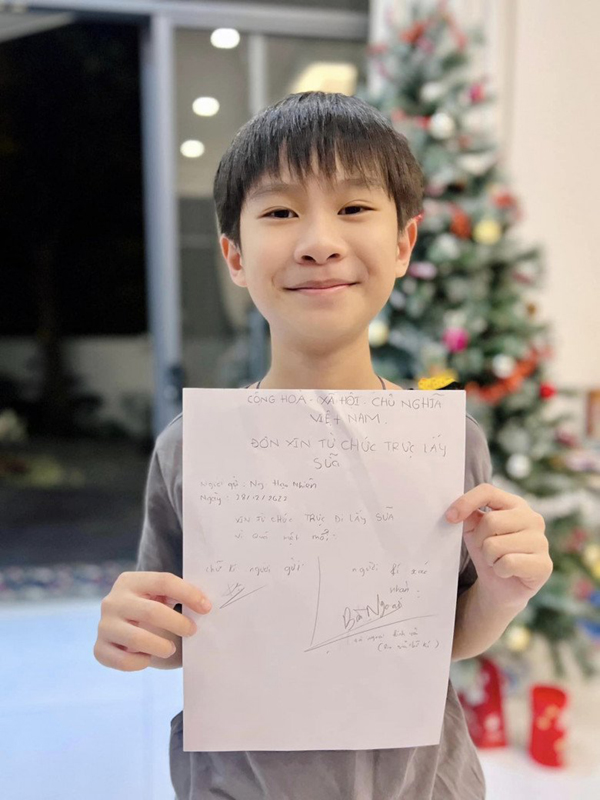 CỘNG HOÀ - XÃ HỘI - CHỦ NGHĨA
VIỆT NAM.
ĐƠN XIN TỪ CHỨC TRỰC LẤY
SỮA
Người gửi:
Ngày: 28/12/2023
XIN TỪ CHỨC TRỰC ĐI LẤY SỮA
vì quá mệt mỏi.
chữ kí người gửi
người kí xác
nhận:
Bà Ngoại